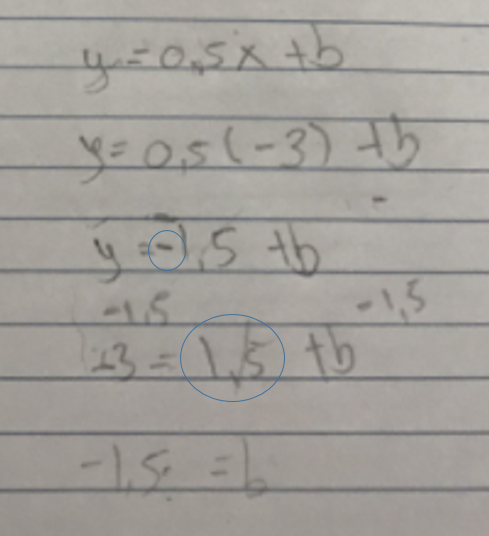 y=0,5x+b
y=0,5(-3) +b
-
y=-1,5 +b
-1,5 -1,5
-3=1,5 +b
-1,5 =b